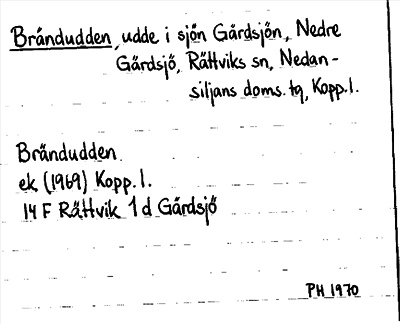 Brändudden, udde i sjön Gärdsjön, Nedre
Gärdsjö, Rättviks sn, Nedan-
siljans doms. tg, Kopp. l.
Brändudden
ek (1969) Kopp. l.
14 F Rättvik 1 d Gärdsjö
PH 1970